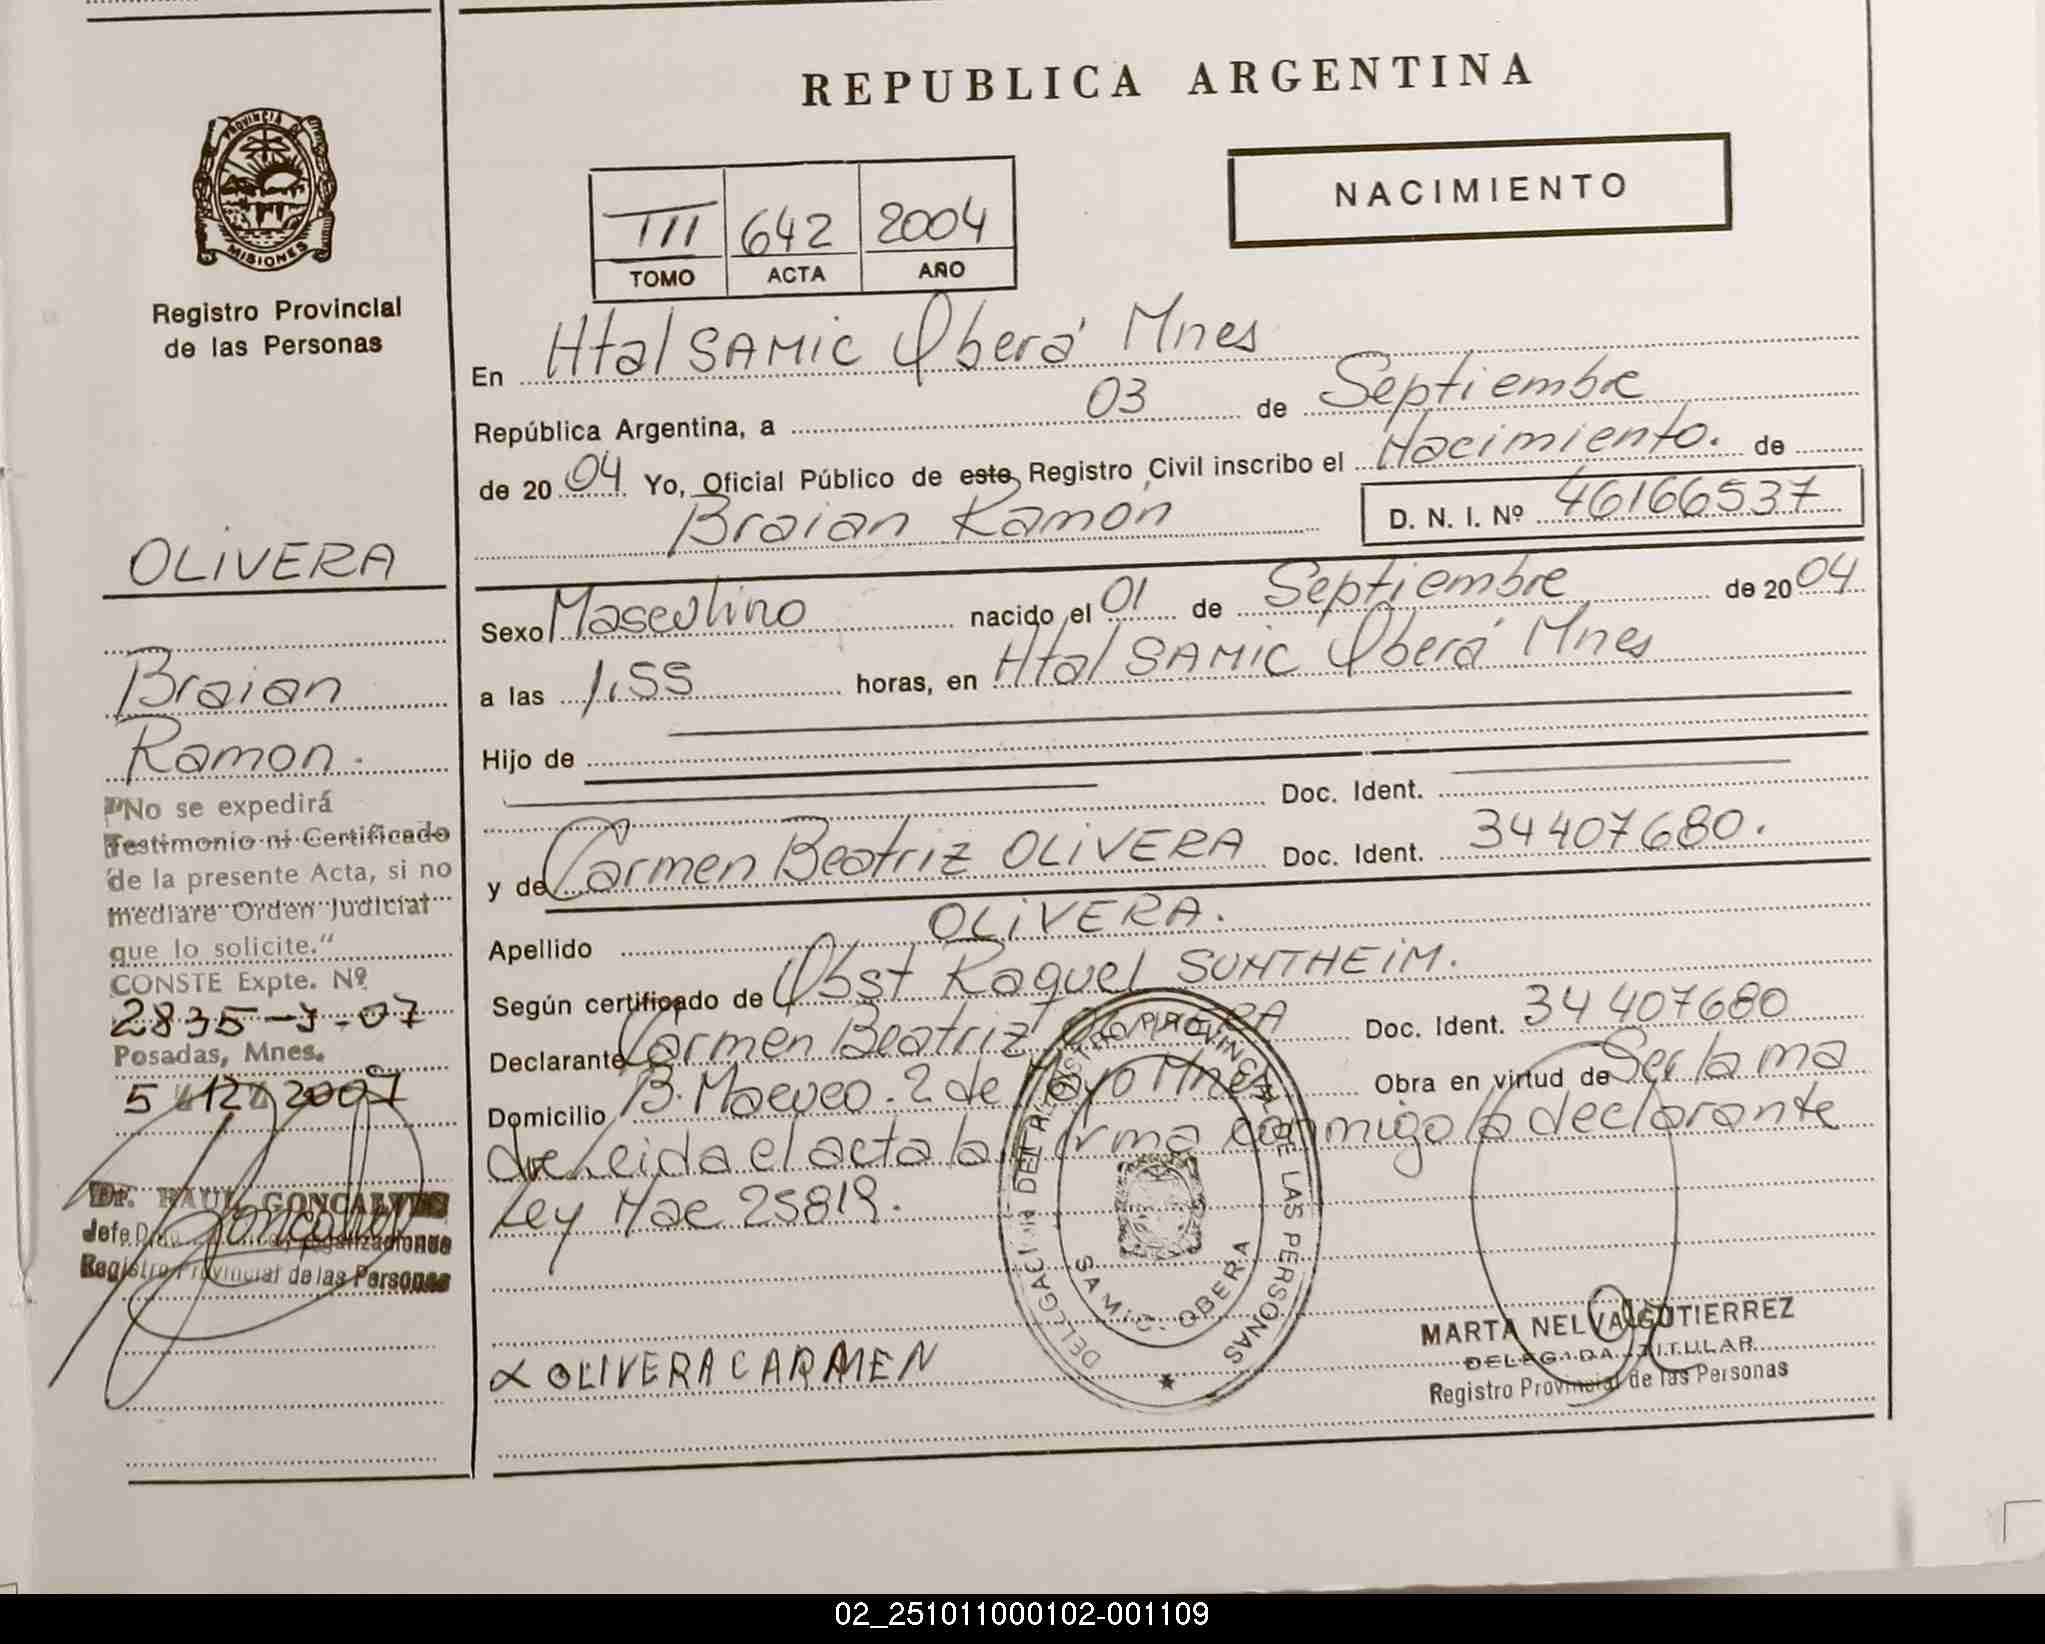 REPUBLICA ARGENTINA
PROVINCIA DE
MISIONES
Registro Provincial
de las Personas
NACIMIENTO
III 642 2004
TOMO ACTA AÑO
En Htal SAMIC Oberá Mnes
República Argentina, a 03 de Septiembre
de 2004 Yo, Oficial Público de este Registro Civil inscribo el Nacimiento. de
Braian Ramón D. N. I. Nº 46166537
Sexo Masculino nacido el 01 de Septiembre de 2004
a las 1,55 horas, en Htal SAMIC Oberá Mnes
Hijo de
Doc. Ident.
y de Carmen Beatriz OLIVERA Doc. Ident. 34407680.
Apellido OLIVERA.
Según certificado de Obst Raquel SUNTHEIM.
Declarante Carmen Beatriz OLIVERA Doc. Ident. 34 407680
Domicilio B. 2 de Mayo Mnes Obra en virtud de Ser la ma
dre Leida el acta la firma conmigo la declarante
Ley Nac 25819.
DELEGACION DEL REGISTRO PROVINCIAL DE LAS PERSONAS
SAMIC - OBERA
x OLIVERA CARMEN
MARTA NELVA GUTIERREZ
DELEGADA TITULAR
Registro Provincial de las Personas
OLIVERA
Braian
Ramon.
"No se expedirá
Testimonio ni Certificado
de la presente Acta, si no
mediare Orden Judicial
que lo solicite."
CONSTE Expte. Nº
2835-J-07
Posadas, Mnes.
5 12 2007
Dr. RAUL GONCALVES
Registro Provincial de las Personas
02_251011000102-001109